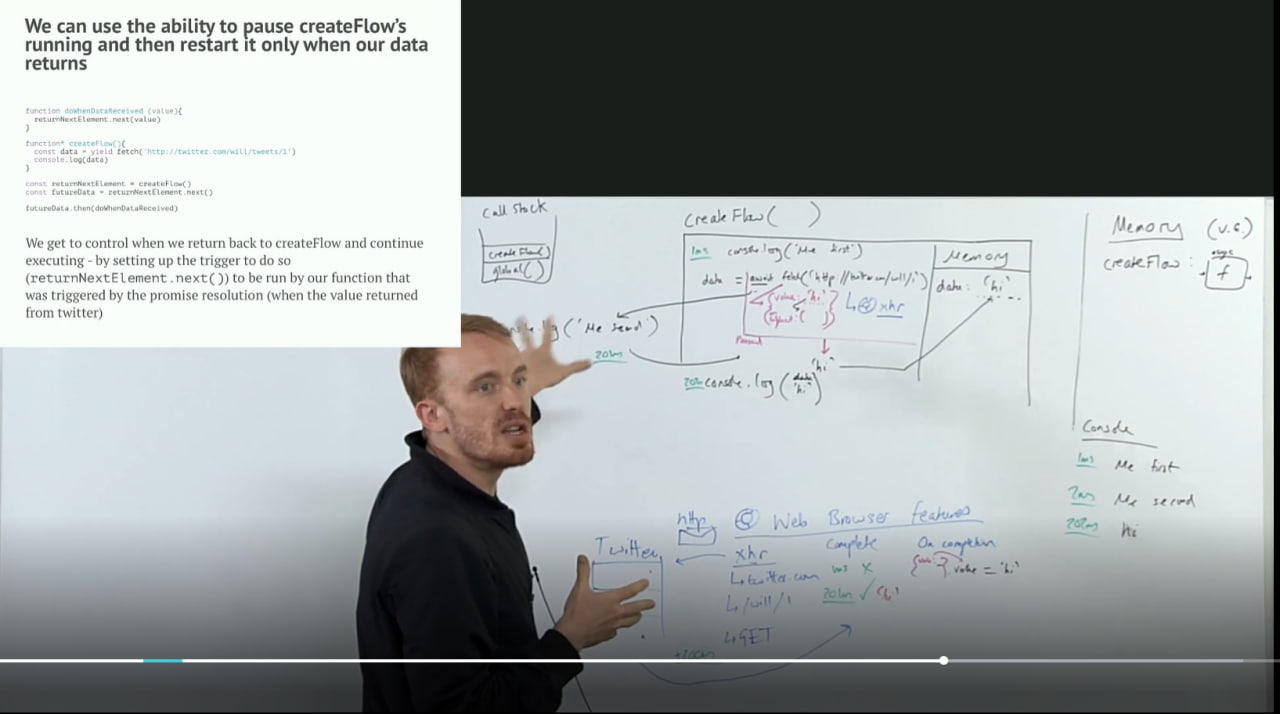 We can use the ability to pause createFlow's
running and then restart it only when our data
returns
function doWhenDataReceived (value){
returnNextElement.next(value)
}
function* createFlow(){
const data = yield fetch('http://twitter.com/will/tweets/1')
console.log(data)
}
const returnNextElement = createFlow()
const futureData = returnNextElement.next()
futureData.then(doWhenDataReceived)
We get to control when we return back to createFlow and continue
executing - by setting up the trigger to do so
(returnNextElement.next()) to be run by our function that
was triggered by the promise resolution (when the value returned
from twitter)
Call Stack
createFlow()
global()
createFlow( )
1ms console.log('Me first')
data = await fetch('http://twitter.com/will/1')
{value: 'hi'}
↳ xhr
Paused
'hi'
('Me second')
201ms
console.log(
'hi'
Memory
data: 'hi'
Memory (v.e.)
createFlow: f
Console
1ms Me first
2ms Me second
202ms hi
Twitter
http
Web Browser features
xhr Complete On completion
↳ twitter.com 1ms X value = 'hi'
↳ /will/1 201ms ✓ 'hi'
↳ GET